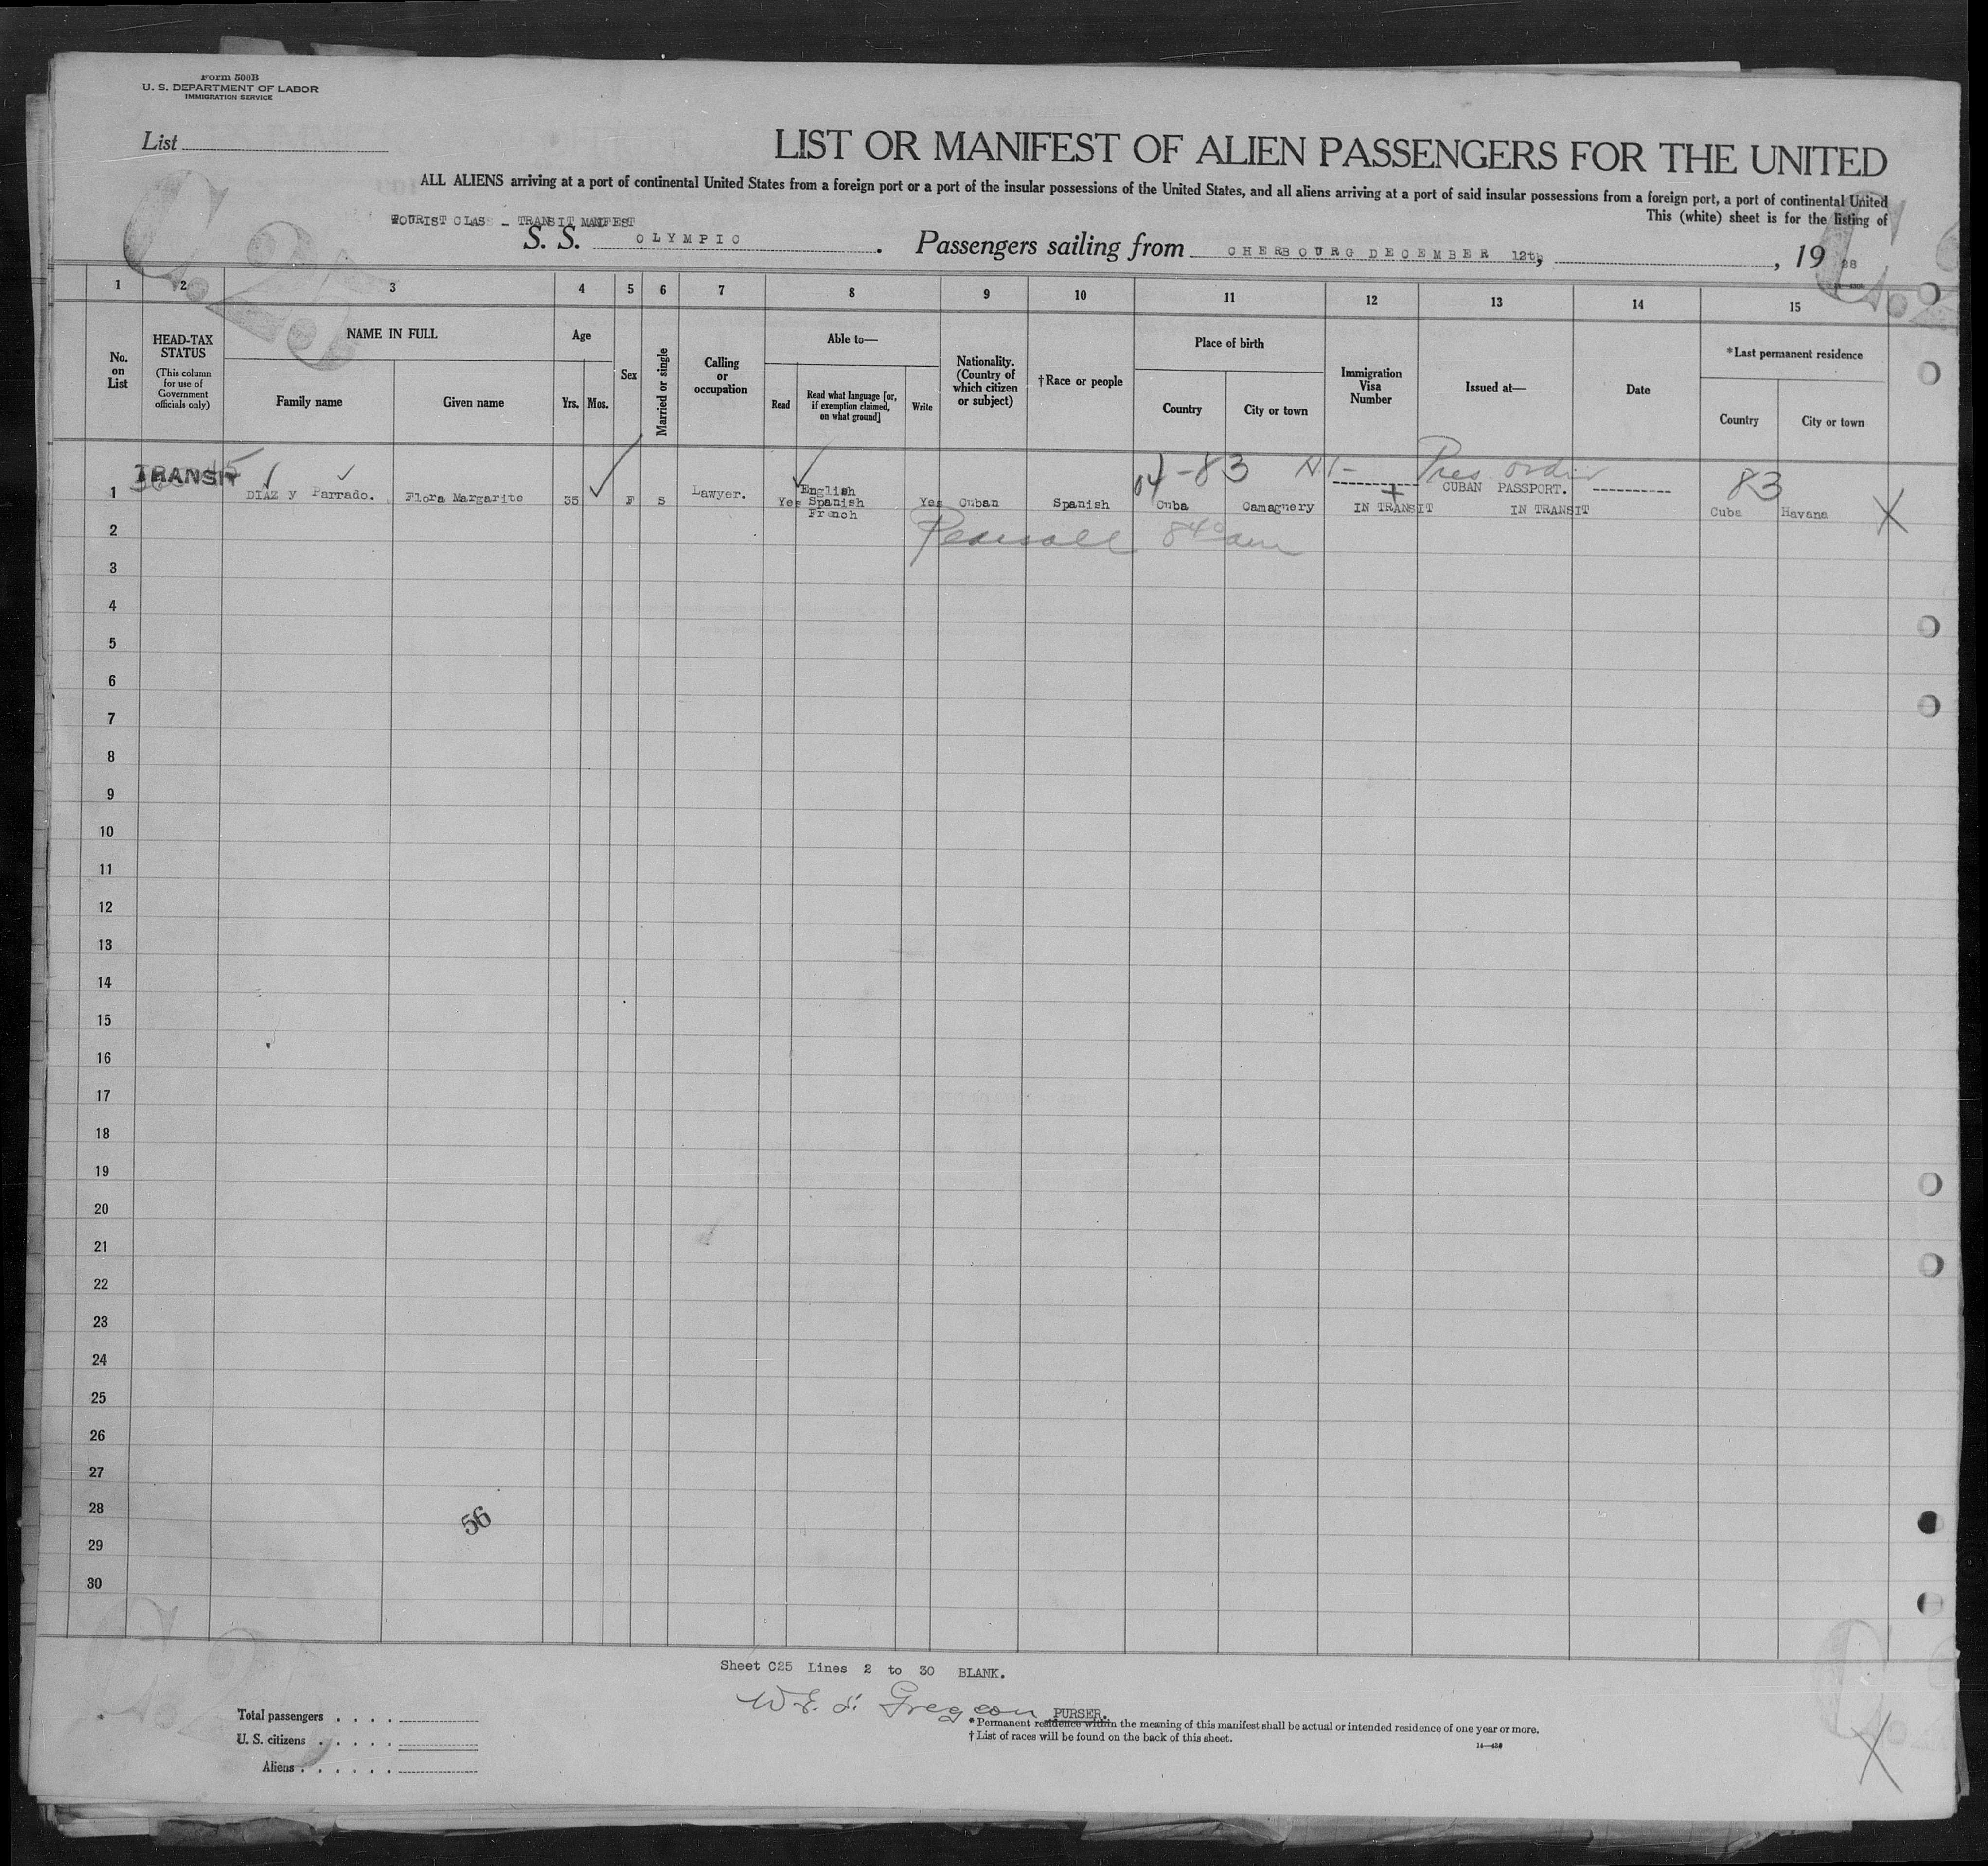 Form 500B
U. S. DEPARTMENT OF LABOR
IMMIGRATION SERVICE
List
LIST OR MANIFEST OF ALIEN PASSENGERS FOR THE UNITED
ALL ALIENS arriving at a port of continental United States from a foreign port or a port of the insular possessions of the United States, and all aliens arriving at a port of said insular possessions from a foreign port, a port of continental United
This (white) sheet is for the listing of
TOURIST CLASS - TRANSIT MANIFEST
S. S. OLYMPIC. Passengers sailing from CHERBOURG DECEMBER 12th, , 19 28
1 2 3 4 5 6 7 8 9 10 11 12 13 14 15
No. on List
HEAD-TAX STATUS
(This column for use of Government officials only)
NAME IN FULL
Family name
Given name
Age
Yrs. Mos.
Sex
Married or single
Calling or occupation
Able to—
Read
Read what language [or, if exemption claimed, on what ground]
Write
Nationality. (Country of which citizen or subject)
†Race or people
Place of birth
Country
City or town
Immigration Visa Number
Issued at—
Date
*Last permanent residence
Country
City or town
04-83 Pres 83
1 TRANSIT DIAZ y Parrado. Flora Margarite 35 F S Lawyer. Yes English Spanish French Yes Cuban Spanish Cuba Camaguery IN TRANSIT CUBAN PASSPORT. IN TRANSIT Cuba Havana X
2
3
4
5
6
7
8
9
10
11
12
13
14
15
16
17
18
19
20
21
22
23
24
25
26
27
28
56
29
30
Sheet C25 Lines 2 to 30 BLANK.
PURSER.
Total passengers . . . .
U. S. citizens . . . . .
Aliens . . . . . .
* Permanent residence within the meaning of this manifest shall be actual or intended residence of one year or more.
† List of races will be found on the back of this sheet.
X